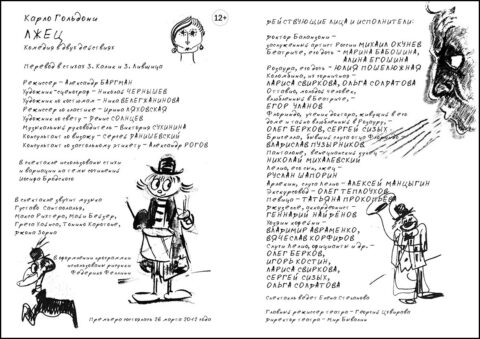 Карло Гольдони
ЛЖЕЦ
Комедия в двух действиях
12+
Перевод в стихах
Режиссер – Александр БАРГМАН
Художник-сценограф – Николай ЧЕРНЫШЕВ
Художник по костюмам – Ника ВЕЛЕГЖАНИНОВА
Режиссер по пластике – Ирина ЛЯХОВСКАЯ
Художник по свету – Денис СОЛНЦЕВ
Музыкальный руководитель – Виктория СУХИНИНА
Консультант по вокалу – Сергей РАНЫШЕВСКИЙ
Консультант по застольному этикету – Александр РОГОВ
В спектакле использованы стихи
и вариации на тему сочинений
Иосифа Бродского
В спектакле звучит музыка
Густаво Сантаолальи,
Макса Рихтера,
Тонино Каротоне,
Джона Зорна
В оформлении программки
использованы рисунки
Федерико Феллини
Премьера состоялась 26 марта 2017 года
ДЕЙСТВУЮЩИЕ ЛИЦА И ИСПОЛНИТЕЛИ:
Доктор Баланцони –
заслуженный артист России МИХАИЛ ОКУНЕВ
Беатриче, его дочь – МАРИНА БАБОШИНА,
АЛИНА ЕГОШИНА
Розаура, его дочь – ЮЛИЯ ПОШЕЛЮЖНАЯ
Коломбина, их горничная –
ЛАРИСА СВИРКОВА, ОЛЬГА СОЛДАТОВА
Оттавио, молодой человек,
влюбленный в Беатриче, –
ЕГОР УЛАНОВ
Флориндо, ученик доктора, живущий в его
доме и тайно влюбленный в Розауру, –
ОЛЕГ БЕРКОВ, СЕРГЕЙ СИЗЫХ
Бригелла,
ВЛАДИСЛАВ ПУЗЫРНИКОВ
Панталоне, венецианский купец –
НИКОЛАЙ МИХАЛЕВСКИЙ
Лелио, его сын, лжец –
РУСЛАН ШАПОРИН
Арлекин, слуга Лелио – АЛЕКСЕЙ МАНЦЫГИН
Экскурсовод – ОЛЕГ ТЕПЛОУХОВ
Певица – ТАТЬЯНА ПРОКОПЬЕВА
ГЕННАДИЙ НАЙДЕНОВ
Хозяин кофейни –
ВЛАДИМИР АВРАМЕНКО,
ВЯЧЕСЛАВ КОРФИДОВ
Слуги Лелио, официанты и др. –
ОЛЕГ БЕРКОВ,
ИГОРЬ КОСТИН,
ЛАРИСА СВИРКОВА,
СЕРГЕЙ СИЗЫХ,
ОЛЬГА СОЛДАТОВА
Спектакль ведет Елена Степанова
Главный режиссер театра – Георгий Цхвирава
Директор театра – Мир Бикалин